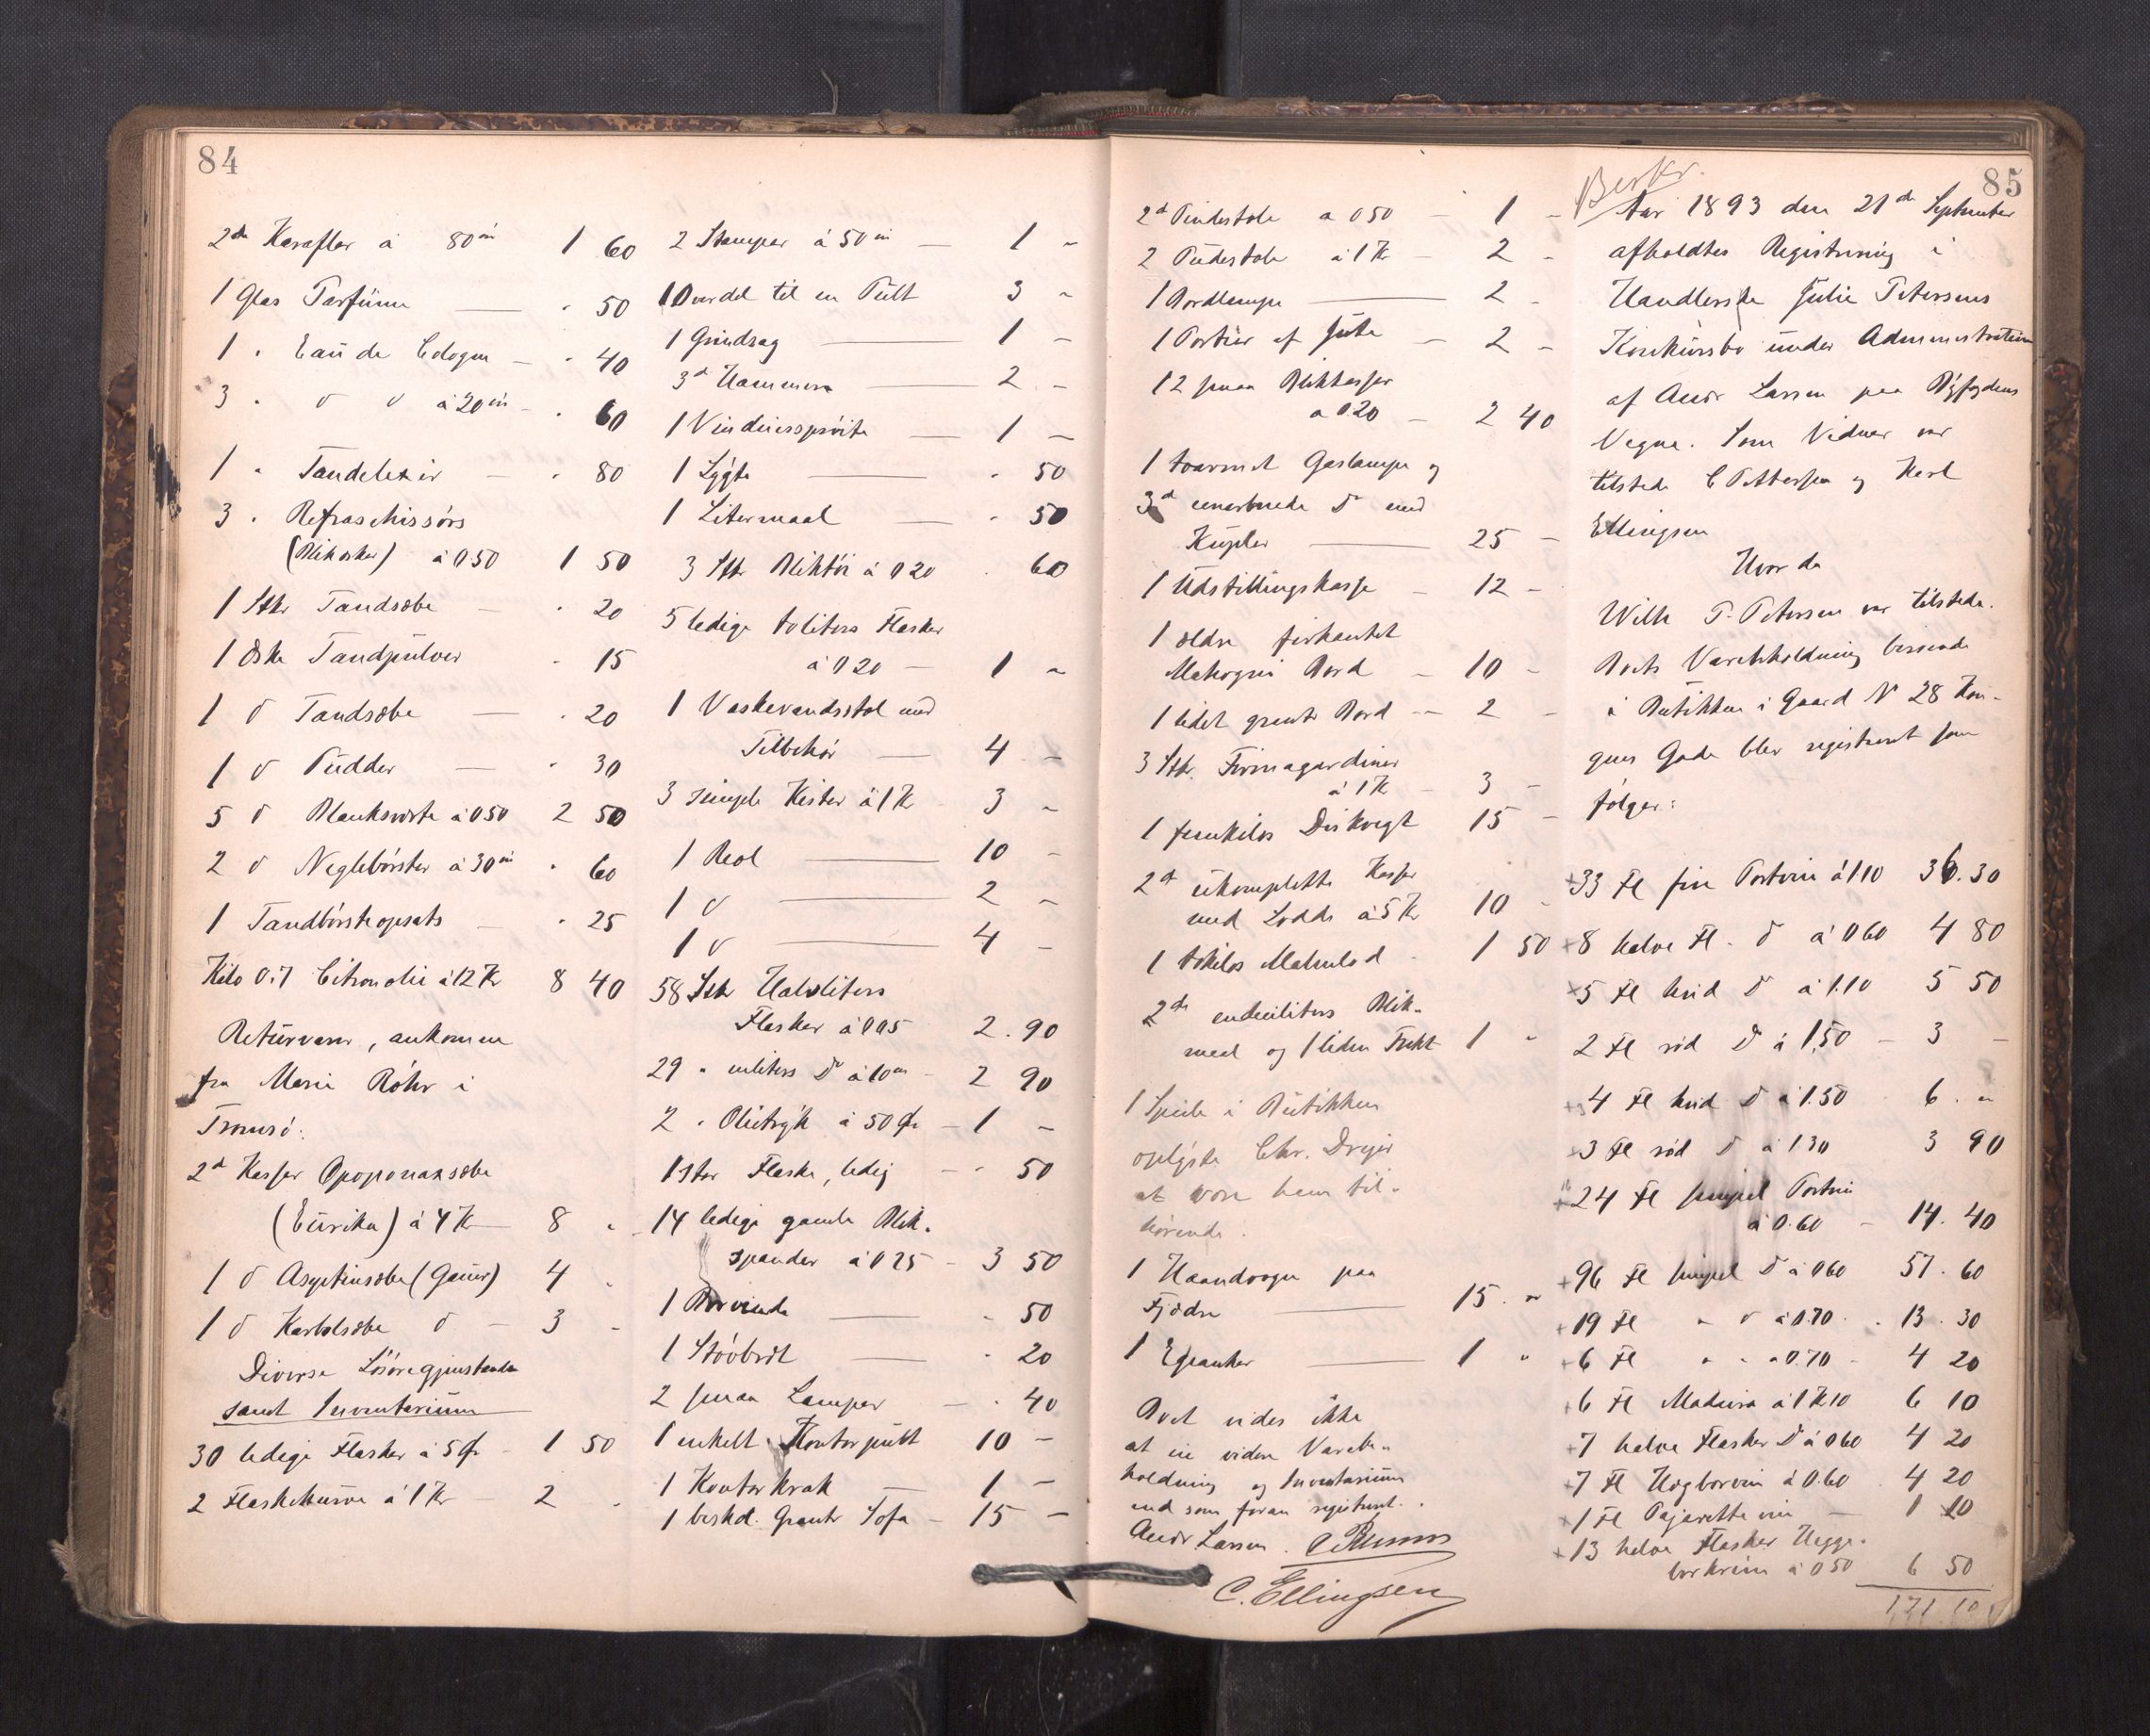 84
2de Karafler á 80 ør 1 60
1 Glas Parfüme - 50
1 " Eau de Cologne - 40
3 " d d á 20 ør - 60
1 " Tandelexir - 80
3 " Refraschissörs
(Blikæsker) á 0.50 1 50
1 Stk Tandsæbe - 20
1 Æske Tandpulver - 15
1 d Tandsæbe - 20
1 d Pudder - 30
5 d Blanksværte á 0 50 2 50
2 d Neglebörster á 30 ør - 60
1 Tandbörsteopsats - 25
Kilo 0.7 Citronolie á 12 Kr 8 40
Returvarer, ankomne
fra Marie Röhr i
Tromsö:
2de Kasser Opoponaxsæbe
(Eurika) á 4 Kr 8 "
1 d Aseptinsæbe (Gauer) 4 -
1 d Karbolsæbe d - 3 -
Diverse Lösöregjenstande
samt Inventarium
30 ledige Flasker á 5 Ør - 1 50
2 Flaskekurve á 1 Kr - 2 -
2 Stamper á 50 ør - 1 -
1 Overdel til en Pult 3 -
1 Grindsag 1 -
3de Hammere 2 -
1 Vinduesspröite 1 -
1 Lygte - 50
1 Litermaal - 50
3 Stk Bliktöi á 0 20 - 60
5 ledige toliters Flasker
á 0 20 - 1 -
1 Vaskevandsstol med
Tilbehör 4 -
3 simple Kister á 1 Kr 3 -
1 Reol 10 -
1 d 2 -
1 d 4 -
58 Stk Halvliters
Flasker á 0 05 2.90
29 " enliters Do á 10 ør - 2 90
2 " Olietöi á 50 Ør - 1 -
1 stor Flaske, ledig - 50
14 ledige gamle Blik-
spander á 0 25 - 3 50
1 Borvinde - 50
1 Stövbræt - 20
2 smaa Lamper - 40
1 enkelt Kontorpult 10 -
1 Kontorkrak 1 -
1 beskd. Grantr Sofa - 15 -
2de Pindestole a 0 50 - 1 -
2 Pudestole á 1 Kr - 2 -
1 Bordlampe 2 -
1 Portier af Jute - 2 -
12 smaa Blikkasser
a 0.20 - 2 40
1 toarmet Gaslampe og
3de enarmede Do med
Kupler 25 -
1 Udstillingskasse - 12 -
1 ældre firkantet
Mahogni Bord - 10 -
1 lidet grantr Bord - 2 -
3 Stk. Firmagardiner
á 1 Kr - 3 -
1 femkilos Diskvegt 15 -
2de ukomplette Kasser
med Lodde á 5 Kr 10 -
1 tokilos Metallod - 1 50
2de endeciliters Blik-
maal og 1 liden Trakt 1 "
1 Speile i Butikken
oplyste Chr. Dreyer
at være ham til-
hörende.
1 Haandvogn paa
Fjædre 15 "
1 Eganker 1 "
Boet vides ikke
at eie videre Varebe-
holdning og Inventarium
end som foran registreret.
Andr Larsen.
C. Ellingsen
85
Berkr.
Aar 1893 den 21de September
afholdtes Registrering i
Handlerske Julie Petersens
Konkursbo under Administration
af Andr Larsen paa Byfogdens
Vegne. Som Vidner var
tilstede C Pettersen og Karl
Ellingsen
Hvorda
Wilh P. Petersen var tilstede.
Boets Varebeholdning beroende
i Butikken i Gaard No 28 Kon-
gens Gade blev registreret som
følger:
+33 Fl fin Portvin á 1 10 36.30
+8 halve Fl. d á 0 60 4 80
+5 Fl hvid Do á 1.10 5 50
2 Fl rød Do á 1.50 - 3 -
+4 Fl hvid Do á 1.50 6 . "
+3 Fl rød Do á 1 30 3 90
+24 Fl simpel Portvin
á 0.60 - 14.40
+96 Fl simpel Do á 0 60 57.60
+19 Fl " d á 0.70 - 13.30
+6 Fl " " a 0.70 - 4 20
+6 Fl Madeira á 1 Kr 10 6 10
+7 halve Flasker Do á 0 60 4 20
+7 Fl Hægborvin á 0.60 4 20
+1 Fl Pajarette vin 1 10
+13 halve Flasker Hegge-
bærkrem á 0 50 6 50
171 10